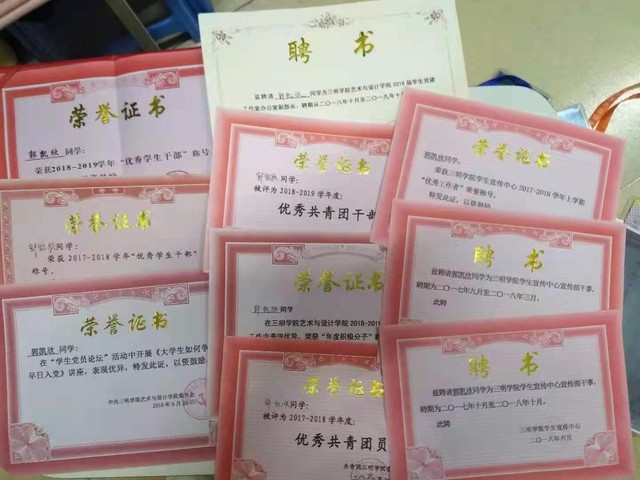 荣誉证书
郭凯欣 同学:
荣获2018-2019学年“优秀学生干部”称号
荣誉证书
同学:
荣获2017-2018学年“优秀学生干部”
称号。
荣誉证书
郭凯欣 同学:
在“学生党员论坛”活动中开展《大学生如何争
早日入党》讲座，表现优异，特发此证，以资鼓励
中共三明学院艺术与设计学院委员会
聘书
兹聘请 同学为三明学院艺术与设计学院2018届学生党建
工作室办公室副部长，聘期从二〇一八年十月至二〇一九年十
荣誉证书
同学:
被评为2018-2019学年度:
优秀共青团干部
荣誉证书
同学
在三明学院艺术与设计学院2018-2019
荣获“年度积极分子”
荣誉证书
同学:
被评为2017-2018学年度:
优秀共青团员
共青团三明学院
荣誉证书
郭凯欣同学:
荣获三明学院学生宣传中心2017-2018学年上学期
“优秀工作者”荣誉称号。
特发此证，以资
聘书
兹聘请郭凯欣同学为三明学院学生宣传中心宣传部干事，
聘期为二〇一七年九月至二〇一八年三月。
此聘
聘书
兹聘请郭凯欣同学为三明学院学生宣传中心宣传部干事，
聘期为二〇一七年十月至二〇一八年十月。
此聘
三明学院学生宣传中心
二〇一八年六月